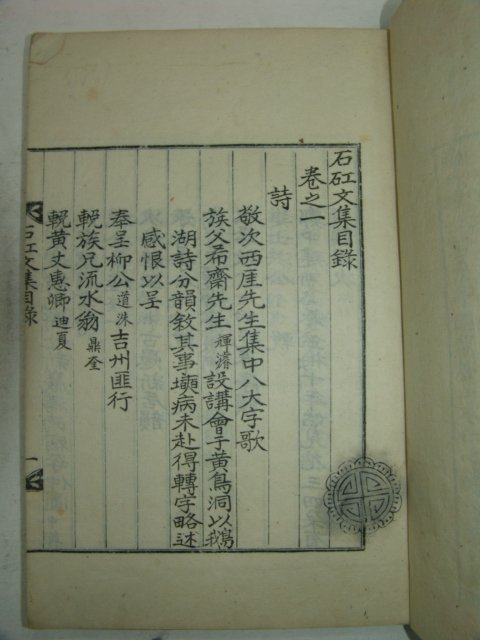 石矼文集目錄
卷之一
詩
敬次西厓先生集中八大字歌
族父希齋先生輝濬設講會于黃鳥洞以鵝
湖詩分韻敘其事壩病未赴得轉字略述
感恨以呈
奉呈柳公道洙吉州匪行
輓族兄流水翁鼎奎
輓黃丈惠卿迪夏
石矼文集目錄
一